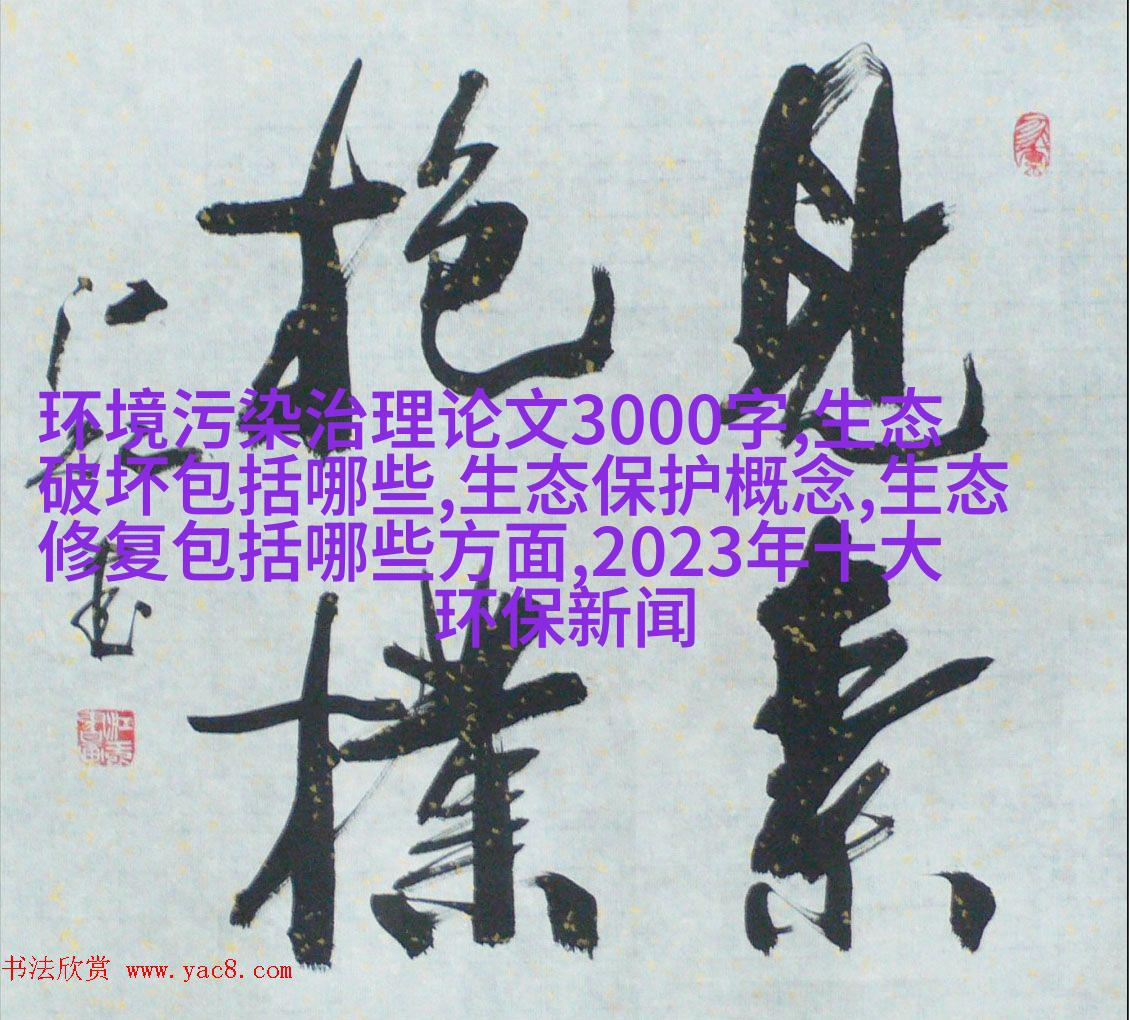 见素
抱樸
环境污染治理论文3000字,生态
破坏包括哪些,生态保护概念,生态
修复包括哪些方面,2023年十大
环保新闻
书法欣赏 www.yac8.com